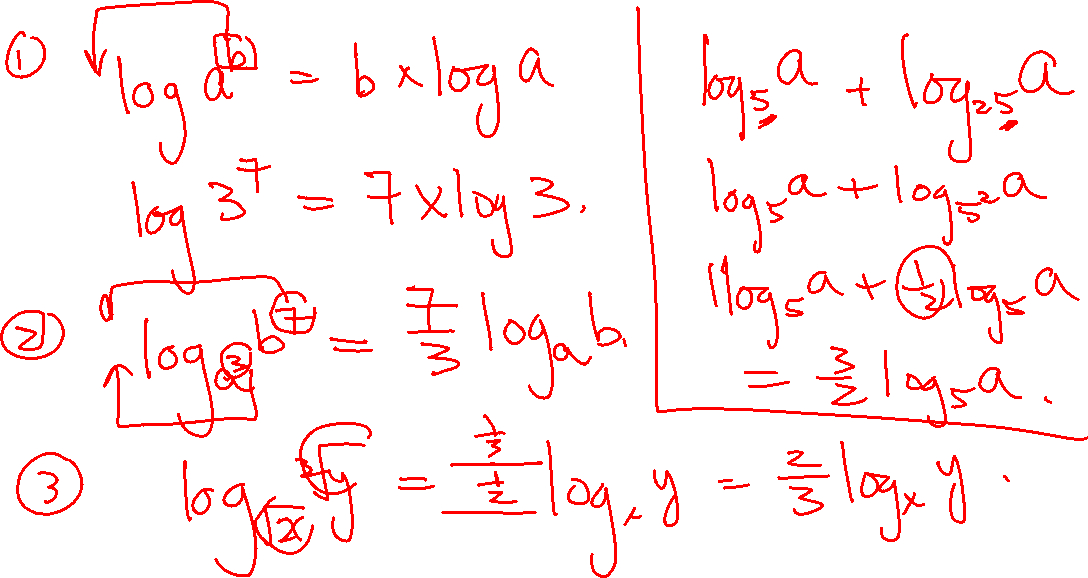 ① log a^b = b × log a
log 3^7 = 7 × log 3.
② log_{a^3} b^7 = 7/3 log_a b.
③ log_{√x} ∛y = (1/3)/(1/2) log_x y = 2/3 log_x y.
log_5 a + log_25 a
log_5 a + log_{5^2} a
1 log_5 a + 1/2 log_5 a
= 3/2 log_5 a.